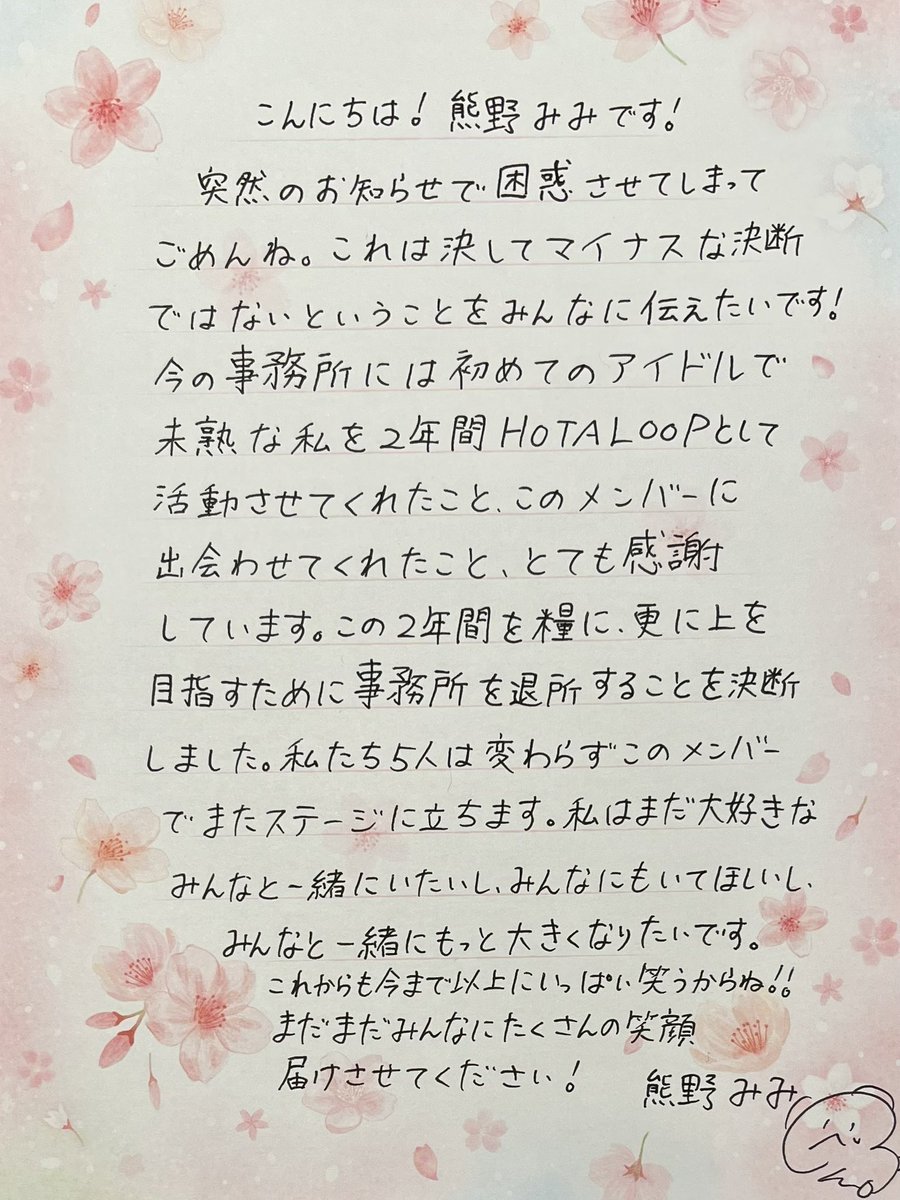 こんにちは! 熊野みみです!
突然のお知らせで困惑させてしまって
ごめんね。これは決してマイナスな決断
ではないということをみんなに伝えたいです!
今の事務所には初めてのアイドルで
未熟な私を2年間HOTALOOPとして
活動させてくれたこと、このメンバーに
出会わせてくれたこと、とても感謝
しています。この2年間を糧に、更に上を
目指すために事務所を退所することを決断
しました。私たち5人は変わらずこのメンバー
でまたステージに立ちます。私はまだ大好きな
みんなと一緒にいたいし、みんなにもいてほしいし、
みんなと一緒にもっと大きくなりたいです。
これからも今まで以上にいっぱい笑うからね!!
まだまだみんなにたくさんの笑顔
届けさせてください!
熊野みみ